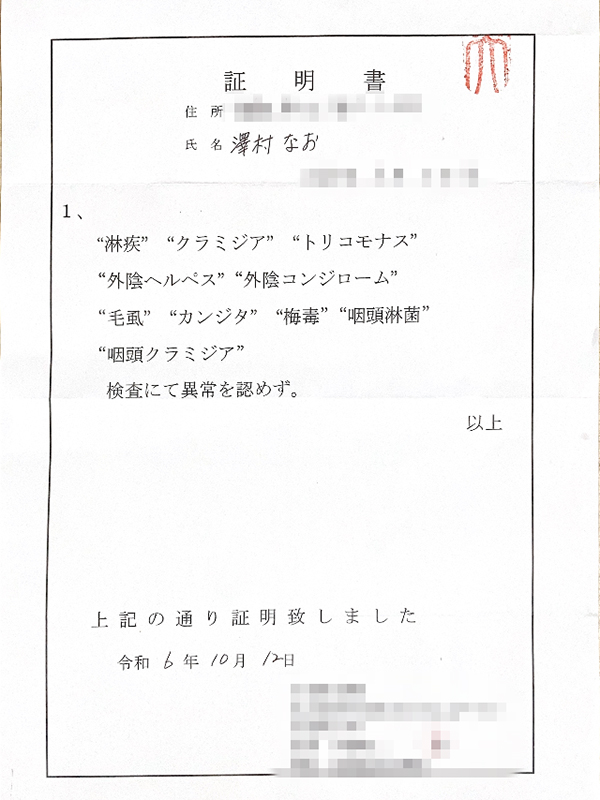 証明書
住所
氏名 澤村 なお
1、
“淋疾” “クラミジア” “トリコモナス”
“外陰ヘルペス” “外陰コンジローム”
“毛虱” “カンジタ” “梅毒” “咽頭淋菌”
“咽頭クラミジア”
検査にて異常を認めず。
以上
上記の通り証明致しました
令和 6 年 10 月 12 日